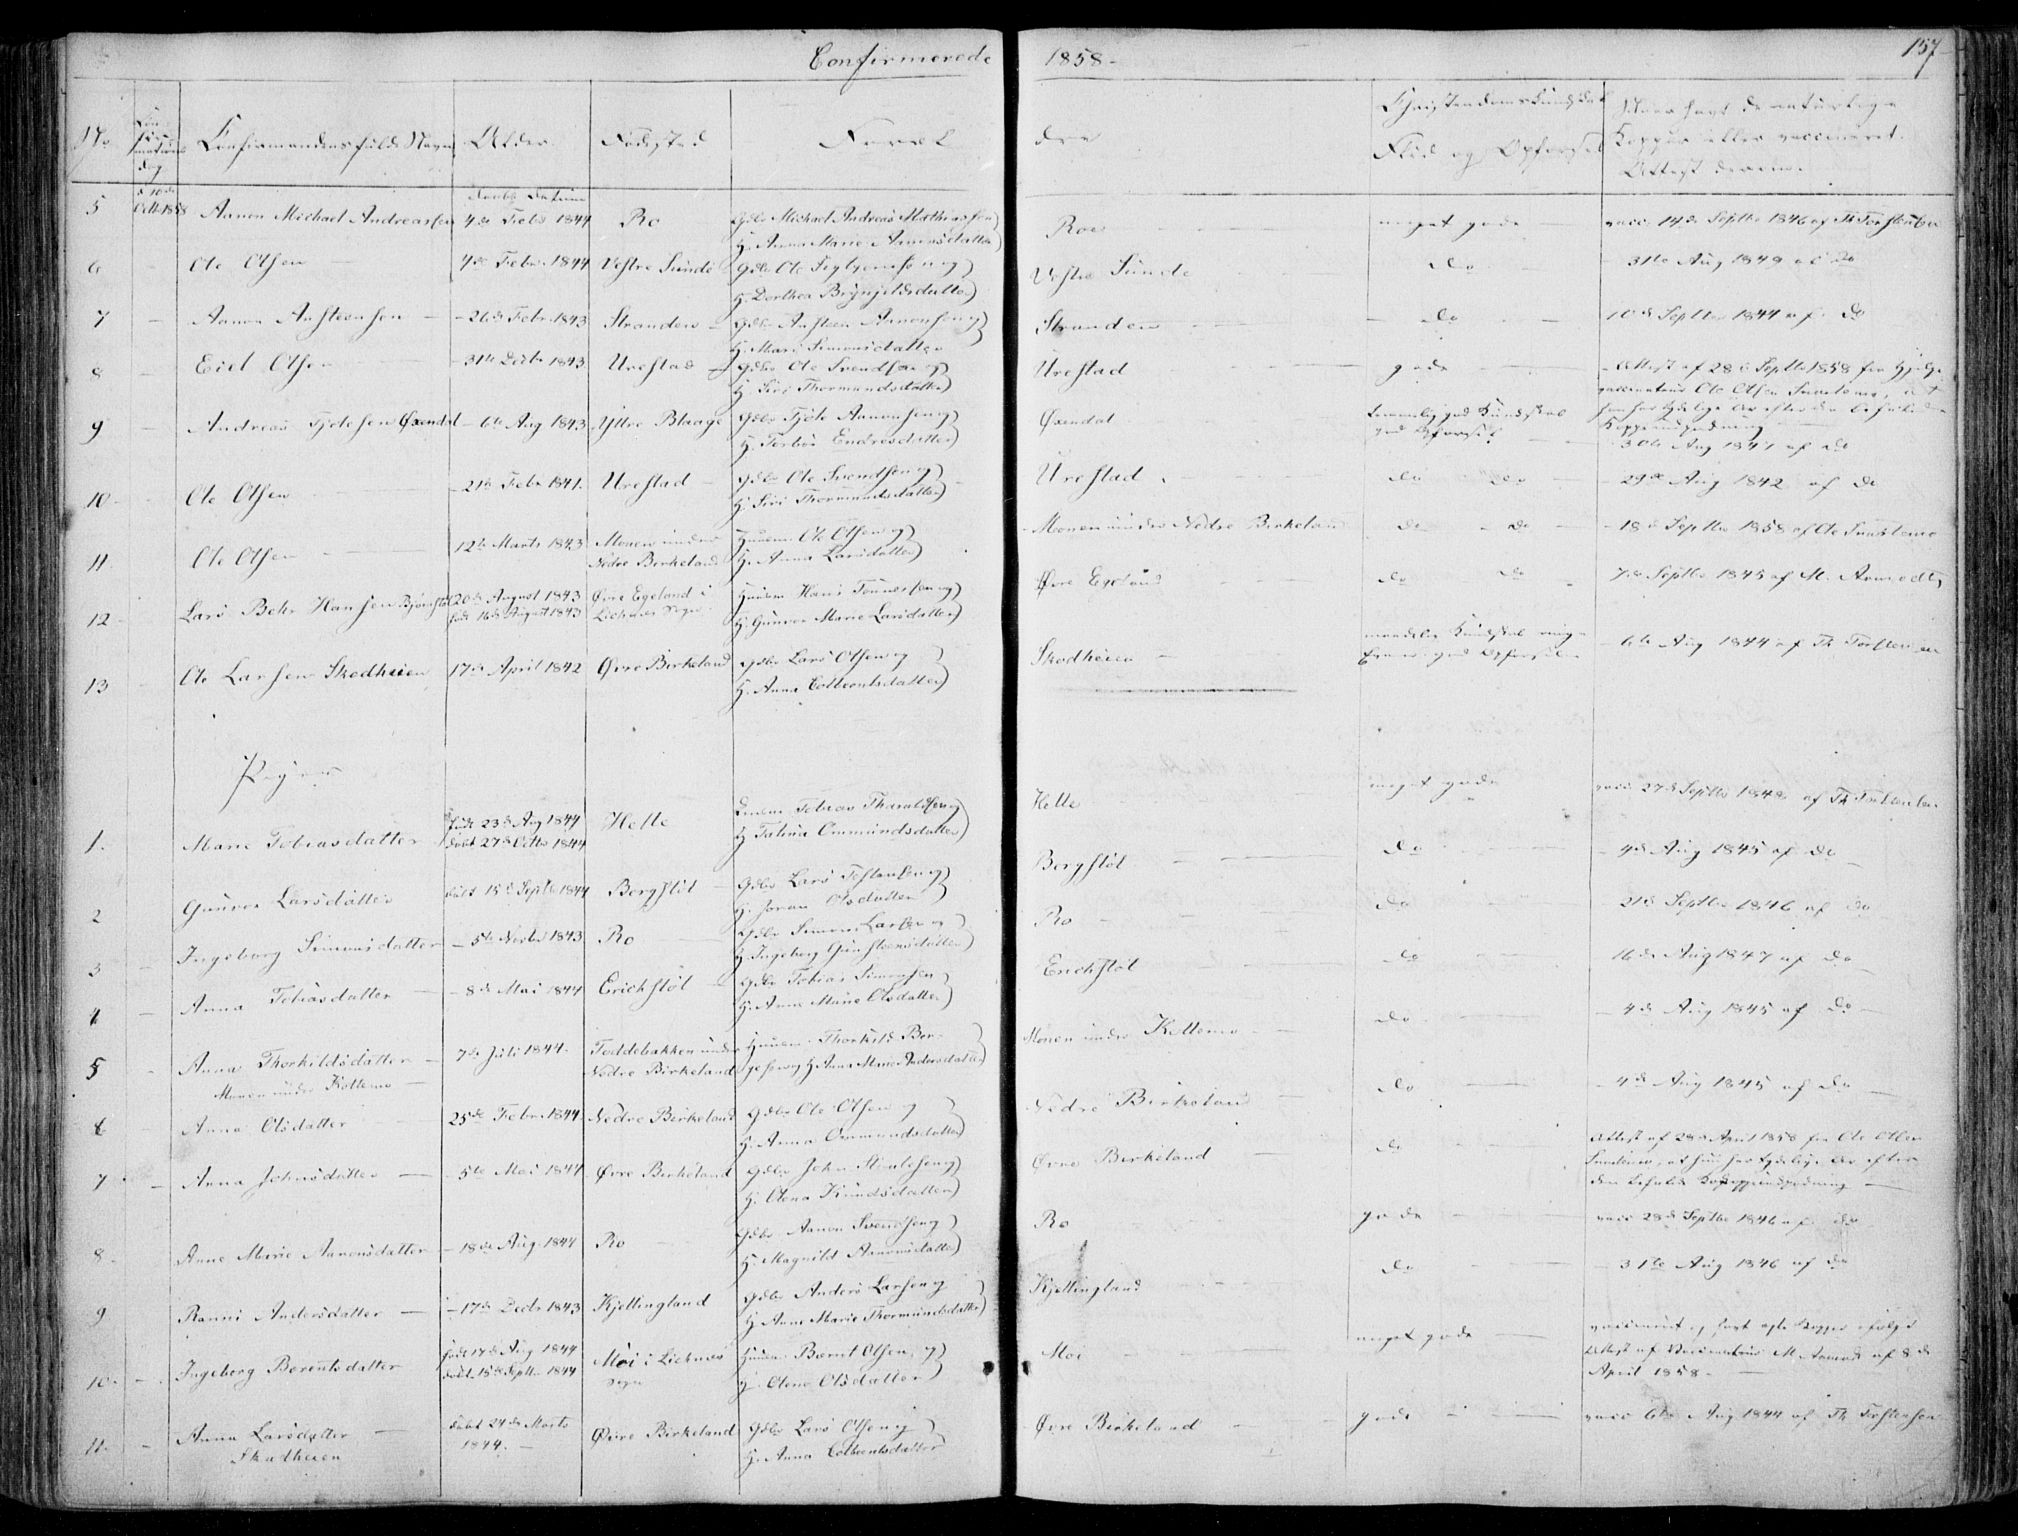 Confirmerede 1858.
157
No
Confirmandens fulde Navn
Alder
Fødested
Foræl
dre
Christendoms Kundskab
Flid og Opførsel
Koppor eller vaccineret.
Attest derom.
5 d 10de Octb 1858 Aanon Michael Andreassen Døbt Datum 4de Febr 1844 Ro Gdbr Michael Andreas Mathiassen
H. Anna Marie Aanonsdatter Roe meget gode vacc. 14de Septbr 1846 af Th Torstensen
6 Ole Olsen 4de Febr. 1844 Vestre Sunde Gdbr Ole Sigbjørnsen og
H. Dorthea Brynjeldsdatter Vestre Sunde do 31te Aug 1849 af do
7 Aanon Ansteensen 26de Febr. 1843 Stranden Gdbr Ansteen Aanonsen og
H. Mari Simonsdatter Stranden do 10de Septbr 1844 af do
8 Eiel Olsen 31te Decbr 1843 Urestad Gdbr Ole Svendsen og
H. Siri Thormundsdatter Urestad gode Attest af 28de Septbr 1858 fra Hjelpe
vaccinateur Ole Olsen
9 Andreas Fjelesen Øxendal 6te Aug 1843 Yttre Blaage Gdbr Aanonsen og
H. Endresdatter Øxendal temmelig god Kundskab
god Opførsel 30te Aug 1847 af do
10 Ole Olsen 21de Febr 1841. Urestad Gdbr Ole Svendsen og
H. Siri Thormundsdatter Urestad do do 29de Aug 1842 af do
11 Ole Olsen 12te Marts 1843 Monen under
Nedre Birkeland Huusm. Ole Olsen og
H. Anna Larsdatter Monen under Nedre Birkeland do do 18de Septbr 1858 af Ole
12 Lars Behr Hansen 20de August 1843
født 16de August 1843 Øvre Egeland i
Liknes Sogn Huusm Hans Tønnesen og
H. Gunvor Marie Larsdatter Øvre Egeland do do 7de Septbr 1845 af M.
13 Ole Larsen Skodheien 17de April 1842 Øvre Birkeland Gdbr Lars Olsen og
H. Anna Skodheien
god Opførsel 6te Aug 1844 af Th Torstensen
Piger
1. Marie Tobiasdatter født 23de Aug 1844
døbt 27de Octbr 1844 Helle Tobias Tharaldsen og
H. Talina Ommundsdatter Helle meget gode vacc. 27de Septbr af Th Torstensen
2 Gunvor Larsdatter døbt 15de Septbr 1844 Bergstøl Gdbr Lars og
H. Joran Olsdatter Bergstøl do 4de Aug 1845 af do
3 Ingeborg Simonsdatter 5te Novbr 1843 Ro Gdbr Simon Larsen og
H. Ingeborg Gunsteensdatter Ro do 21de Septbr 1846 af do
4 Anna Tobiasdatter 8de Mai 1844 Erichstøl Gdbr Tobias Simonsen
H. Anna Marie Olsdatter Erichstøl do 16de Aug 1847 af do
5 Anna Thorkildsdatter
Monen under Kollemo 7de Juli 1844. Toddebakken under
Nedre Birkeland Huusm. Thorkild Ber-
gesen og H. Anna Marie Andersdatter Monen under Kollemo do 4de Aug 1845 af do
6 Anna Olsdatter 25de Febr. 1844 Nedre Birkeland Gdbr Ole Olsen og
H. Anna Ommundsdatter Nedre Birkeland do 4de Aug 1845 af do
7 Anna Johnsdatter 5te Mai 1844 Øvre Birkeland Gdbr John og
H. Olena Knudsdatter Øvre Birkeland do Attest af 28de April 1858 fra Ole Olsen
8 Anne Marie Aanonsdatter 18de Aug. 1844 Ro Gdbr Aanon Svendsen og
H. Magnild Aanonsdatter Ro gode vacc 28de Septbr 1846 af do
9 Ranni Andersdatter 17de Decbr 1843 Kjellingland Gdbr Anders Larsen og
H. Anne Marie Thormundsdatter Kjellingland do 31te Aug 1846 af do
10. Ingeborg Berentsdatter født 17de Aug 1844
døbt 15de Septbr 1844 Moi i Liknes
Sogn Huusm. Bernt Olsen og
H. Olene Olsdatter Moi meget gode
Attest af Vaccinateur M. af 8de
April 1858.
11. Anna Larsdatter
Skodheien døbt 24de Marts
1844. Øvre Birkeland Gdbr Lars Olsen og
H. Anna Øvre Birkeland gode vacc 6te Aug 1844 af Th Torstensen